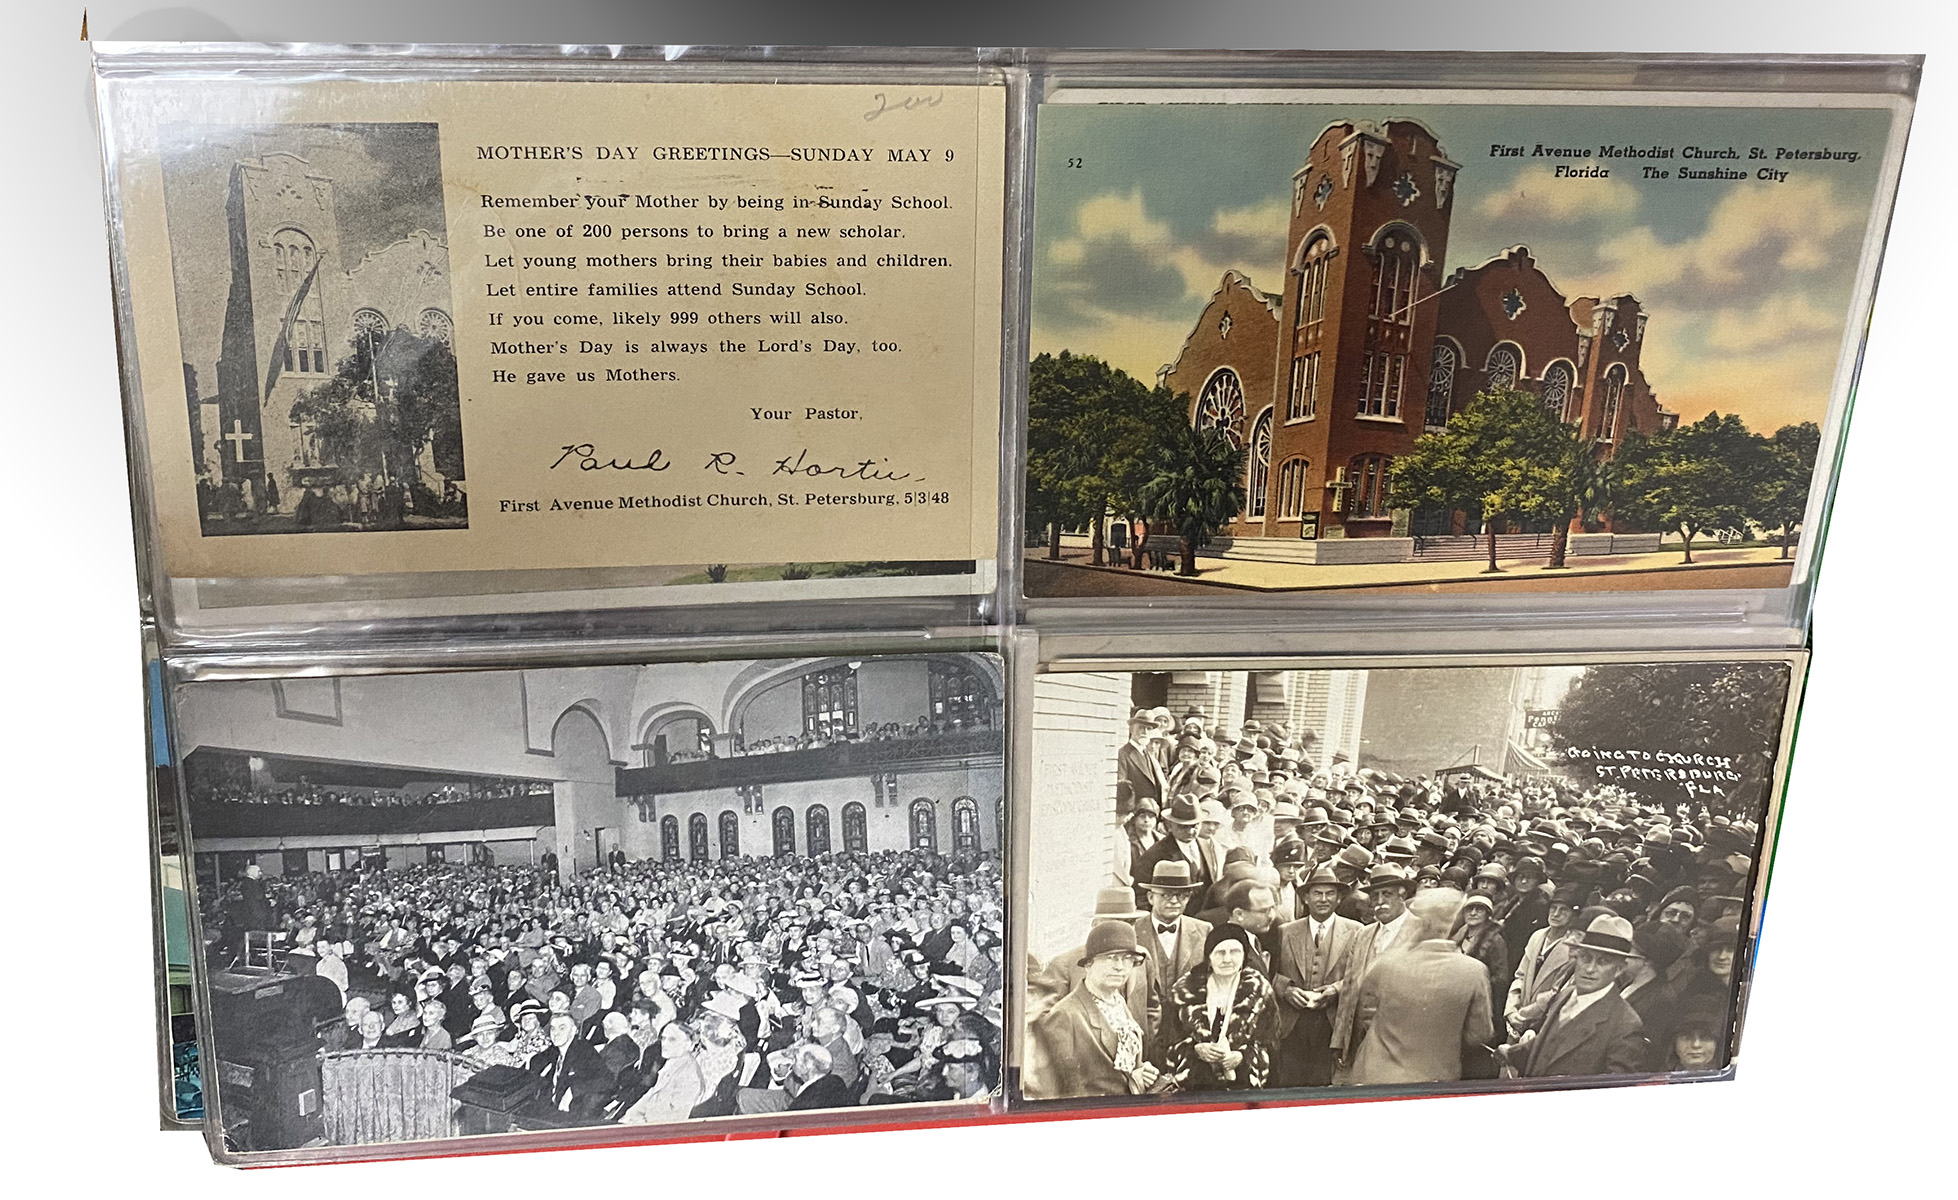 200
MOTHER'S DAY GREETINGS—SUNDAY MAY 9
Remember your Mother by being in Sunday School.
Be one of 200 persons to bring a new scholar.
Let young mothers bring their babies and children.
Let entire families attend Sunday School.
If you come, likely 999 others will also.
Mother's Day is always the Lord's Day, too.
He gave us Mothers.
Your Pastor,
Paul R. Hortin
First Avenue Methodist Church, St. Petersburg, 5|3|48
52
First Avenue Methodist Church, St. Petersburg,
Florida The Sunshine City
GOING TO CHURCH
ST. PETERSBURG,
FLA
FIRST AVENUE
METHODIST